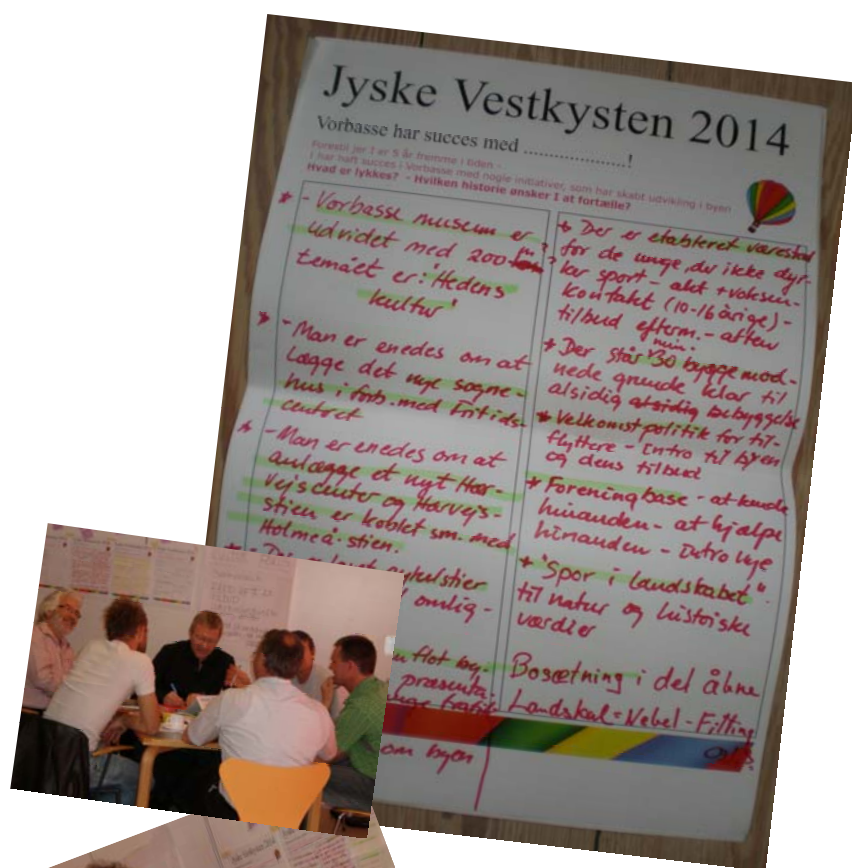 Jyske Vestkysten 2014
Vorbasse har succes med ....................!
Forestil jer I er 5 år fremme i tiden -
I har haft succes i Vorbasse med nogle initiativer, som har skabt udvikling i byen
Hvad er lykkes? - Hvilken historie ønsker I at fortælle?
* - Vorbasse museum er
udvidet med 200
temaet er: "Hedens
kultur"
* - Man er enedes om at
lægge det nye sogne-
hus i forb. med Fritids-
centret
* - Man er enedes om at
anlægge et nyt Hær-
vejscenter og Hærvejs-
stien er koblet sm. med
Holmeå-stien.
cykelstier
omlig-
flot by-
præsenta-
om byen
* Der er etableret værested
for de unge, der ikke dyr-
ker sport - akt + voksen-
kontakt (10-16 årige) -
tilbud efterm. - aften
* Der står min. 30 byggemod-
nede grunde klar til
alsidig alsidig bebyggelse
* Velkomstpolitik for til-
flyttere - Intro til byen
og dens tilbud
* Foreningbase - at kende
hinanden - at hjælpe
hinanden - intro nye
* "Spor i landskabet".
til natur og historiske
værdier
Bosætning i det åbne
Landskab = Nebel - Fitting